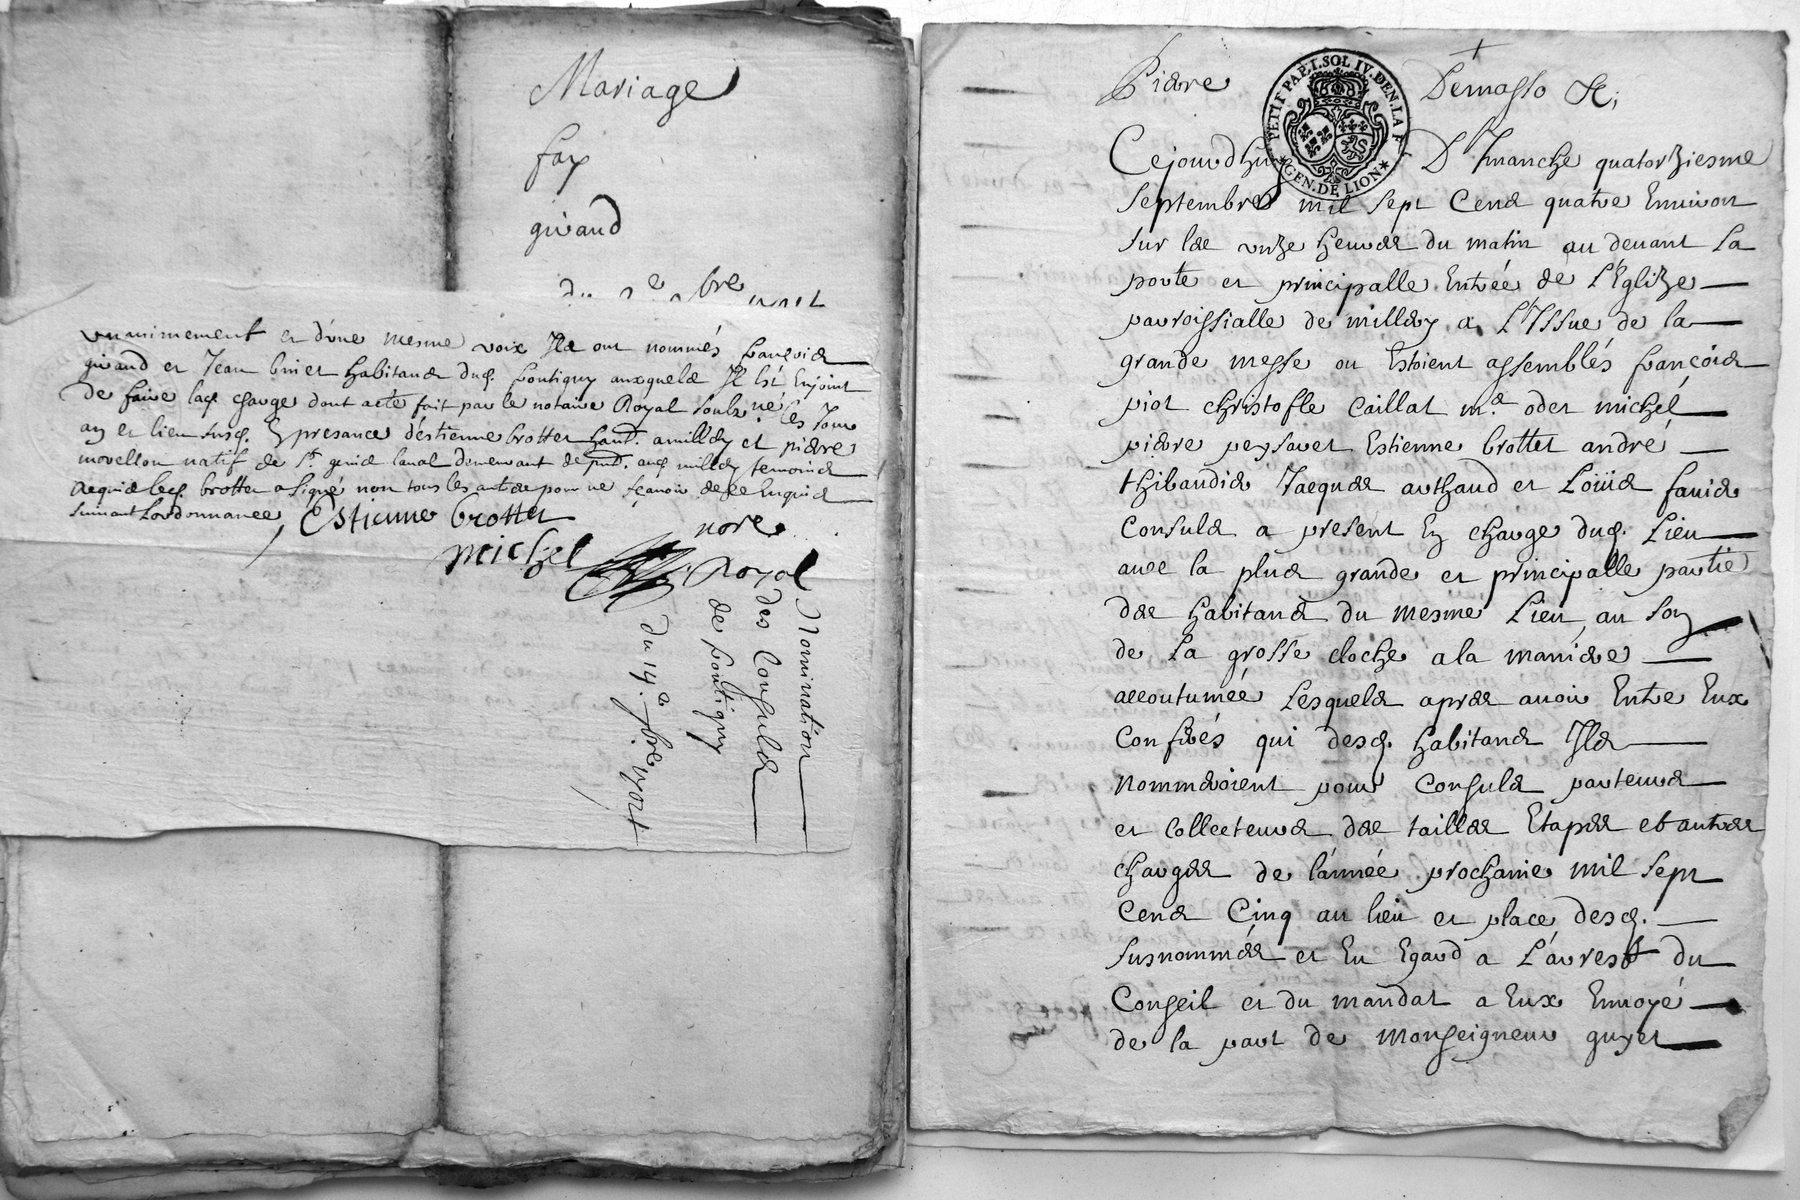 Mariage
fay
givaud
vnanimement et d'vne mesme voix Ils ont nommés françois
givaud et Jean binet habitans dud. pontigny auxquels Il Est Enjoint
de faire lad. charge dont acte fait par le notaire Royal soubz.né les Jour
an et lieu susd. En presance d'éstienne brottet habt. a millery et pierre
morellon natif de st. genis laual demeurant de pnt. aud. millery temoins
Requis led. brottet a signé non tous les autres pour ne sçauoir de ce Enquis
suiuant Lordonnance,
Estienne brottet
michel
nore
Royal
Nomination
des Consuls
de pontigny
du 14.e 7.bre 1704
Pierre Demasso &;
PETIT PAP. I. SOL IV. DEN. LA F.
GEN. DE LION
Cejourdhuy D'Imanche quatorziesme
septembre mil sept Cens quatre Enuiron
sur les vnze heures du matin au deuant la
porte et principalle Entrée de L'Eglize
parroissialle de millery a L'Issue de la
grande messe ou Estoient assemblés françois
piot christofle Caillat m.e odet michel
pierre peysaret Estienne brottet andré
thibaudis Jacques arthaud et Loüis fauis
Consuls a present En charge dud. Lieu
auec la plus grande et principalle partie
des habitans du mesme Lieu, au son
de La grosse cloche a la maniere
accoutumée Lesquels apres auoir Entre Eux
Conferés qui desd. habitans Ils
nommeroient pour Consuls parteurs
et Collecteurs des tailles Etapes et autres
charges de l'année prochaine mil sept
Cens Cinq au lieu et place desd.
susnommés et Eu Egard a L'arrest du
Conseil et du mandat a Eux Enuoyé
de la part de Monseigneur guyet